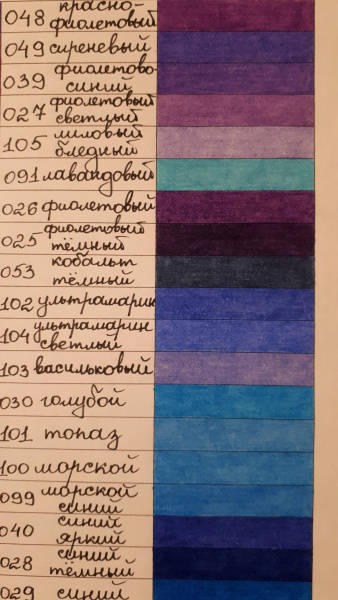 048 красно-
фиолетовый
049 сиреневый
039 фиолетово-
синий
027 фиолетовый
светлый
105 лиловый
бледный
091 лавандовый
026 фиолетовый
025 фиолетовый
тёмный
053 кобальт
тёмный
102 ультрамарин
104 ультрамарин
светлый
103 васильковый
030 голубой
101 топаз
100 морской
099 морской
синий
040 синих
яркий
028 синий
тёмный
029 синий